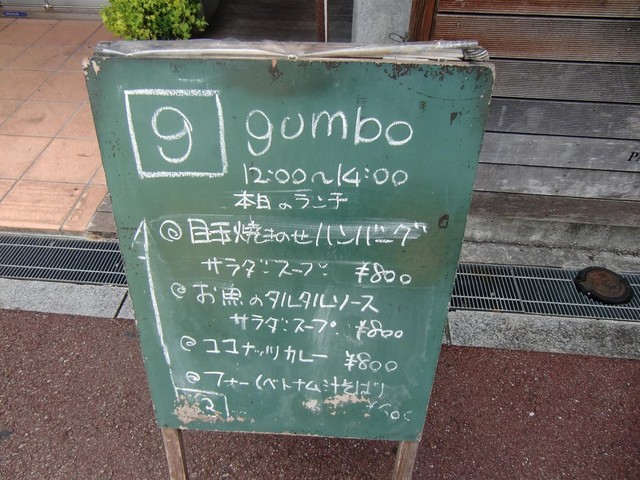 9 gumbo
12:00〜14:00
本日のランチ
目玉焼きのせハンバーグ
サラダ:スープ ¥800
お魚のタルタルソース
サラダ:スープ ¥800
ココナッツカレー ¥800
フォー(ベトナム汁そば)
3